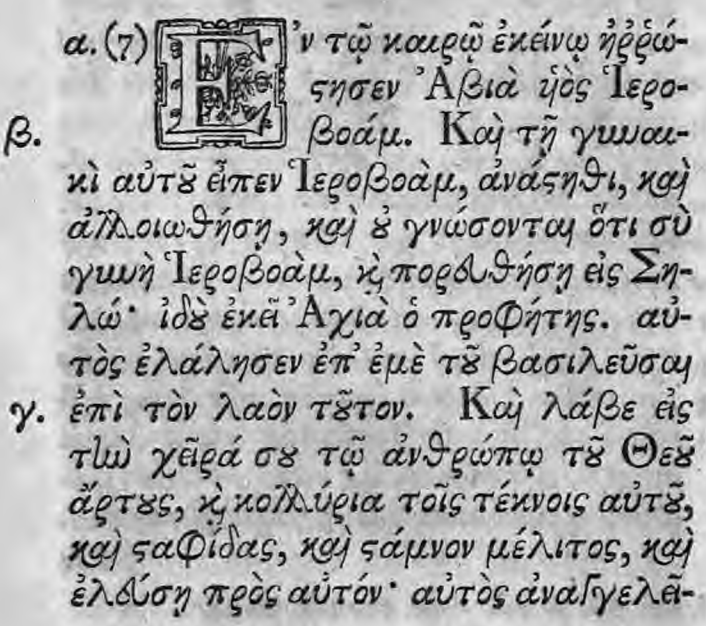 α. (7) Ἐν τῷ καιρῷ ἐκείνῳ ἠῤῥώ-
στησεν Ἀβιὰ υἱὸς Ἱερο-
β. βοάμ. Καὶ τῇ γυναι-
κὶ αὐτοῦ εἶπεν Ἱεροβοὰμ, ἀνάστηθι, καὶ
ἀλλοιωθήσῃ, καὶ οὐ γνώσονται ὅτι σὺ
γυνὴ Ἱεροβοὰμ, καὶ πορευθήσῃ εἰς Ση-
λώ· ἰδοὺ ἐκεῖ Ἀχιὰ ὁ προφήτης. αὐ-
τὸς ἐλάλησεν ἐπ' ἐμὲ τοῦ βασιλεῦσαι
γ. ἐπὶ τὸν λαὸν τοῦτον. Καὶ λάβε εἰς
τὴν χεῖρά σου τῷ ἀνθρώπῳ τοῦ Θεοῦ
ἄρτους, καὶ κολλύρια τοῖς τέκνοις αὐτοῦ,
καὶ σταφίδας, καὶ στάμνον μέλιτος, καὶ
ἐλεύσῃ πρὸς αὐτόν· αὐτὸς ἀναγγελεῖ-